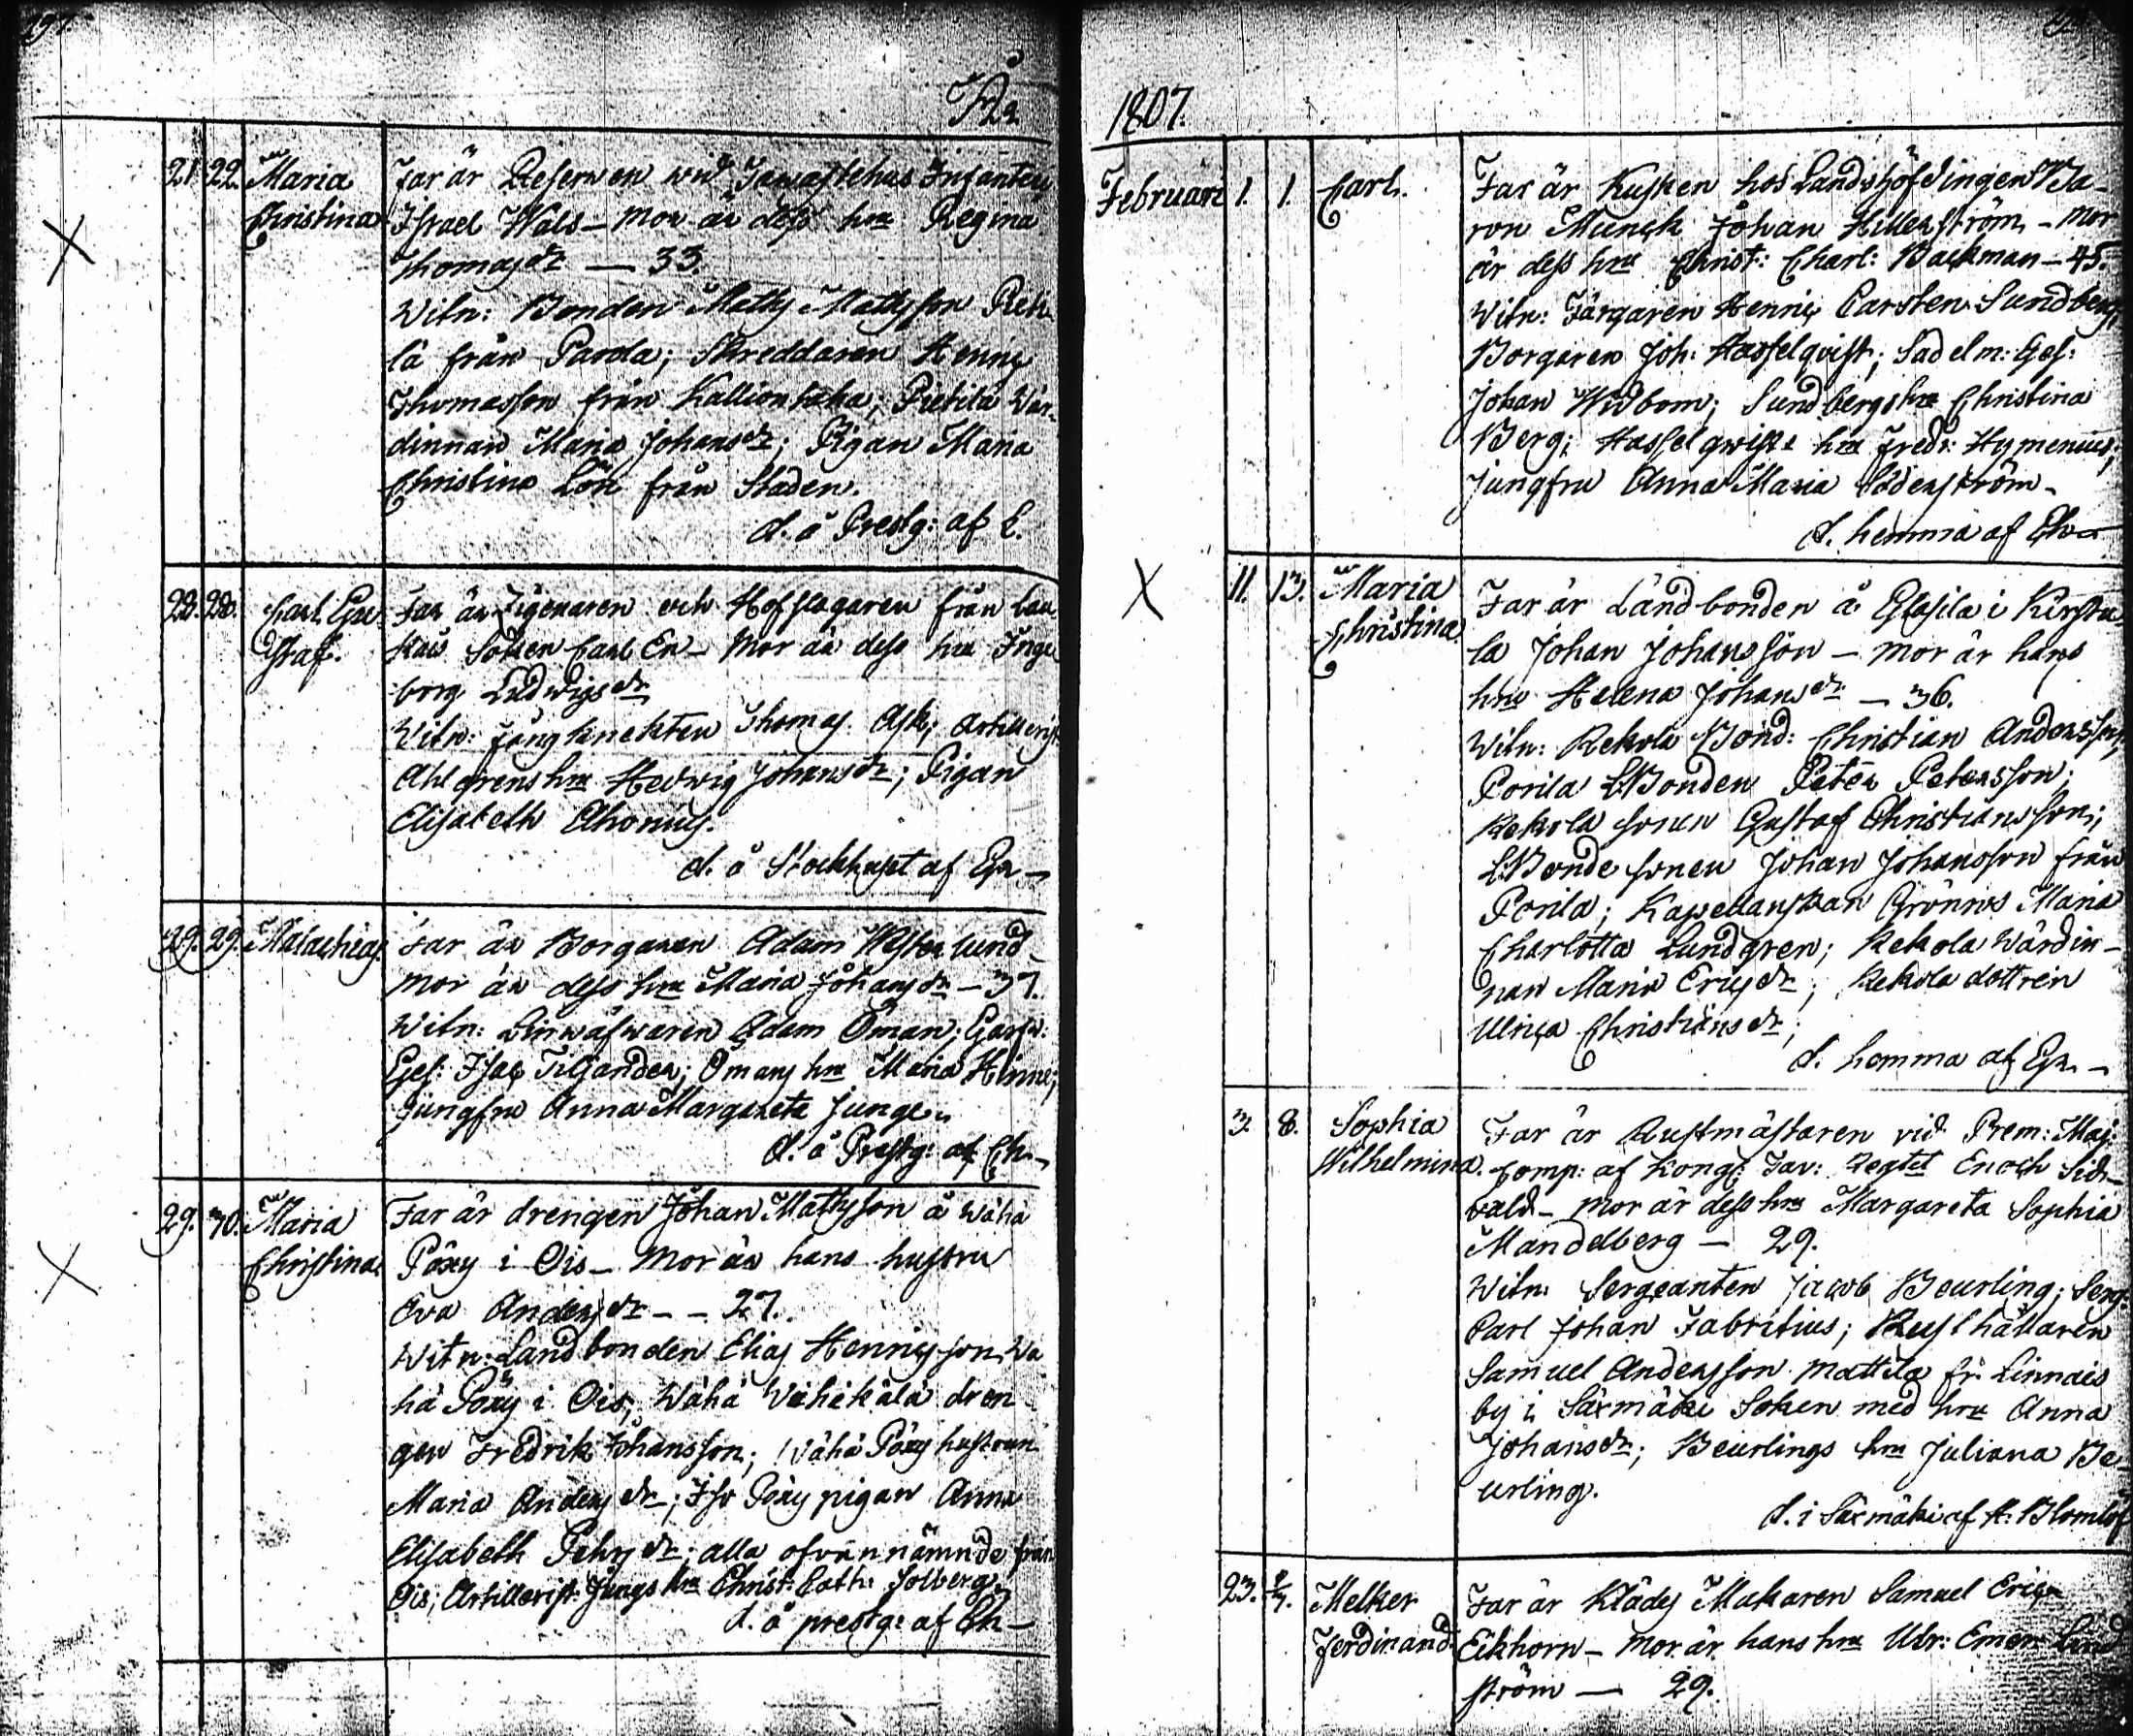 År
21 22. Maria Far är Reserven wid Tawastehus Infanteri
Christina Israel Wals – Mor är dess hru Regina
Thomasdr — 33.
Witn: Bonden Matts Mattsson Pieti
lä från Parola; Skreddaren Henric
Thomasson från Kalliontaka; Pietilä Wär-
dinnan Maria Johansdr; Pigan Maria
Christina Lön från Staden.
d. å Prestg: af E.
28. 28. Carl Gust-
af. Far är Zigenaren och Hofslagaren från Lau
kas Soken Carl En – Mor är dess hru Inge
borg Ludwigsdr
Witn: Fångknekten Thomas Ask; Artillerist
Ahlgrens hru Hedwig Johansdr; Pigan
Elisabeth Ahonius.
d. å Stockhuset af Egn –
29. 29. Malachias. Far är Borgaren Adam Westerlund –
Mor är dess hru Maria Johansdr – 37.
Witn: Linwäfwaren Adam Öman; Garfw:
Ges: Isac Tiljander; Ömans hru Maria Hinne;
Jungfru Anna Margareta Junge.
d. å Prestg: af Eh. –
29. 30. Maria Far är drengen Johan Mattsson å Wähä
Christina Pöxy i Ois – Mor är hans hustru
Eva Andersdr – – 27.
Witn: Landbonden Elias Henricsson Wä
hä Pöxy i Ois; Wähä Wähikälä dren
gen Fredrik Johansson; Wähä Pöxy hustrun
Maria Andersdr; Iso Pöxy pigan Anna
Elisabeth Pehrsdr; alla ofvannämnde från
Ois; Artillerist Jungs hru Christ: Cath: Solberg.
d. å prestg: af Eh –
1807.
Februari 1. 1. Carl. Far är Kusken hos Landshöfdingen Ba-
ron Munck Johan Hillerström – Mor
är dess hru Christ: Charl: Backman – 45.
Witn: Färgaren Henric Carsten Sundberg;
Borgaren Joh: Hasselqvist; Sadelm: Ges:
Johan Widbom; Sundbergs hru Christina
Berg; Hasselqwists hru Fredr: Hymenius;
Jungfru Anna Maria Söderström –
d. hemma af Eh –
11. 13. Maria Far är Landbonden å Eloſila i Kirstu-
Christina. la Johan Johansson – Mor är hans
hru Helena Johansdr – 36.
Witn: Rekola Bond: Christian Andersson;
Porila L:Bonden Peter Petersson;
Rekola sonen Gustaf Christiansson;
L:Bonde sonen Johan Johansson från
Porila; Kapellanskan Grönros Maria
Charlotta Lundgren; Rekola Wärdin-
nan Maria Ericsdr; Rekola dottren
Ulrica Christiansdr;
d. hemma af Egn. –
3. 8. Sophia Far är Rustmästaren vid Prem: Maj:
Wilhelmina. Comp: af Kongl: Tav: Regtet Enoch Sid-
vald – Mor är dess hru Margareta Sophia
Mandelberg — 29.
Witn: Sergeanten Jacob Beurling; Serg:
Carl Johan Fabritius; Rusthållaren
Samuel Andersson Mattila fr. Linnais
by i Säxmäki Soken med hru Anna
Johansdr; Beurlings hru Juliana Be-
urling.
d. i Säxmäki af A: Blomlöf
23. 2/4. Melker Far är Klädes Makaren Samuel Eric
Ferdinand. Eikhorn – Mor är hans hru Ulr: Emer: Lind
ström — 29.